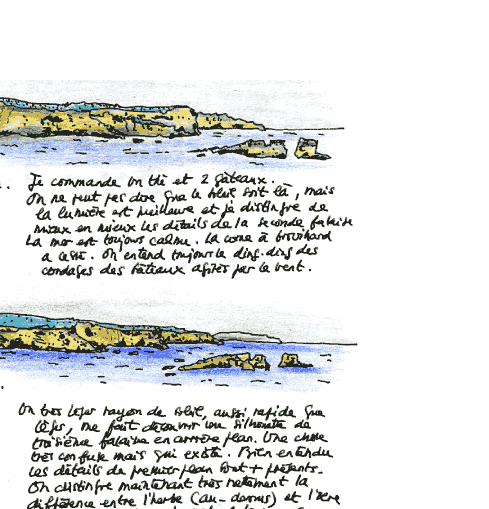 Je commande un thé et 2 gâteaux.
On ne peut pas dire que le soleil soit là, mais
la lumière est meilleure et je distingue de
mieux en mieux les détails de la seconde falaise
La mer est toujours calme. La corne à brouillard
a cessé. On entend toujours le ding-ding des
cordages des bateaux agités par le vent.
Un très léger rayon de soleil, aussi rapide que
léger, me fait découvrir une silhouette de
troisième falaise en arrière plan. Une chose
très confuse mais qui existe. Bien entendu
les détails du premier plan sont + présents.
On distingue maintenant très nettement la
différence entre l'herbe (au-dessus) et l'ocre